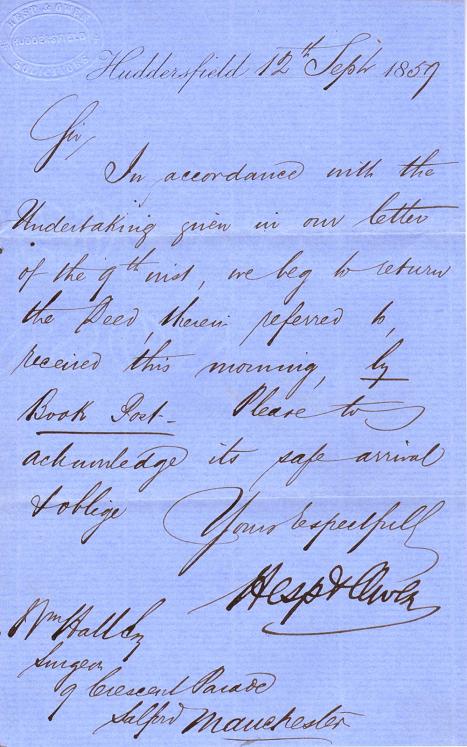 HESP & OWEN
HUDDERSFIELD
SOLICITORS
Huddersfield 12th Septr 1859
Sir,
In accordance with the
Undertaking given in our letter
of the 9th inst, we beg to return
the Deed, therein referred to,
received this morning, by
Book Post - Please to
acknowledge its safe arrival
& oblige Yours respectfully
Hesp & Owen
Wm Hall Esq
Surgeon
9 Crescent Parade
Salford Manchester